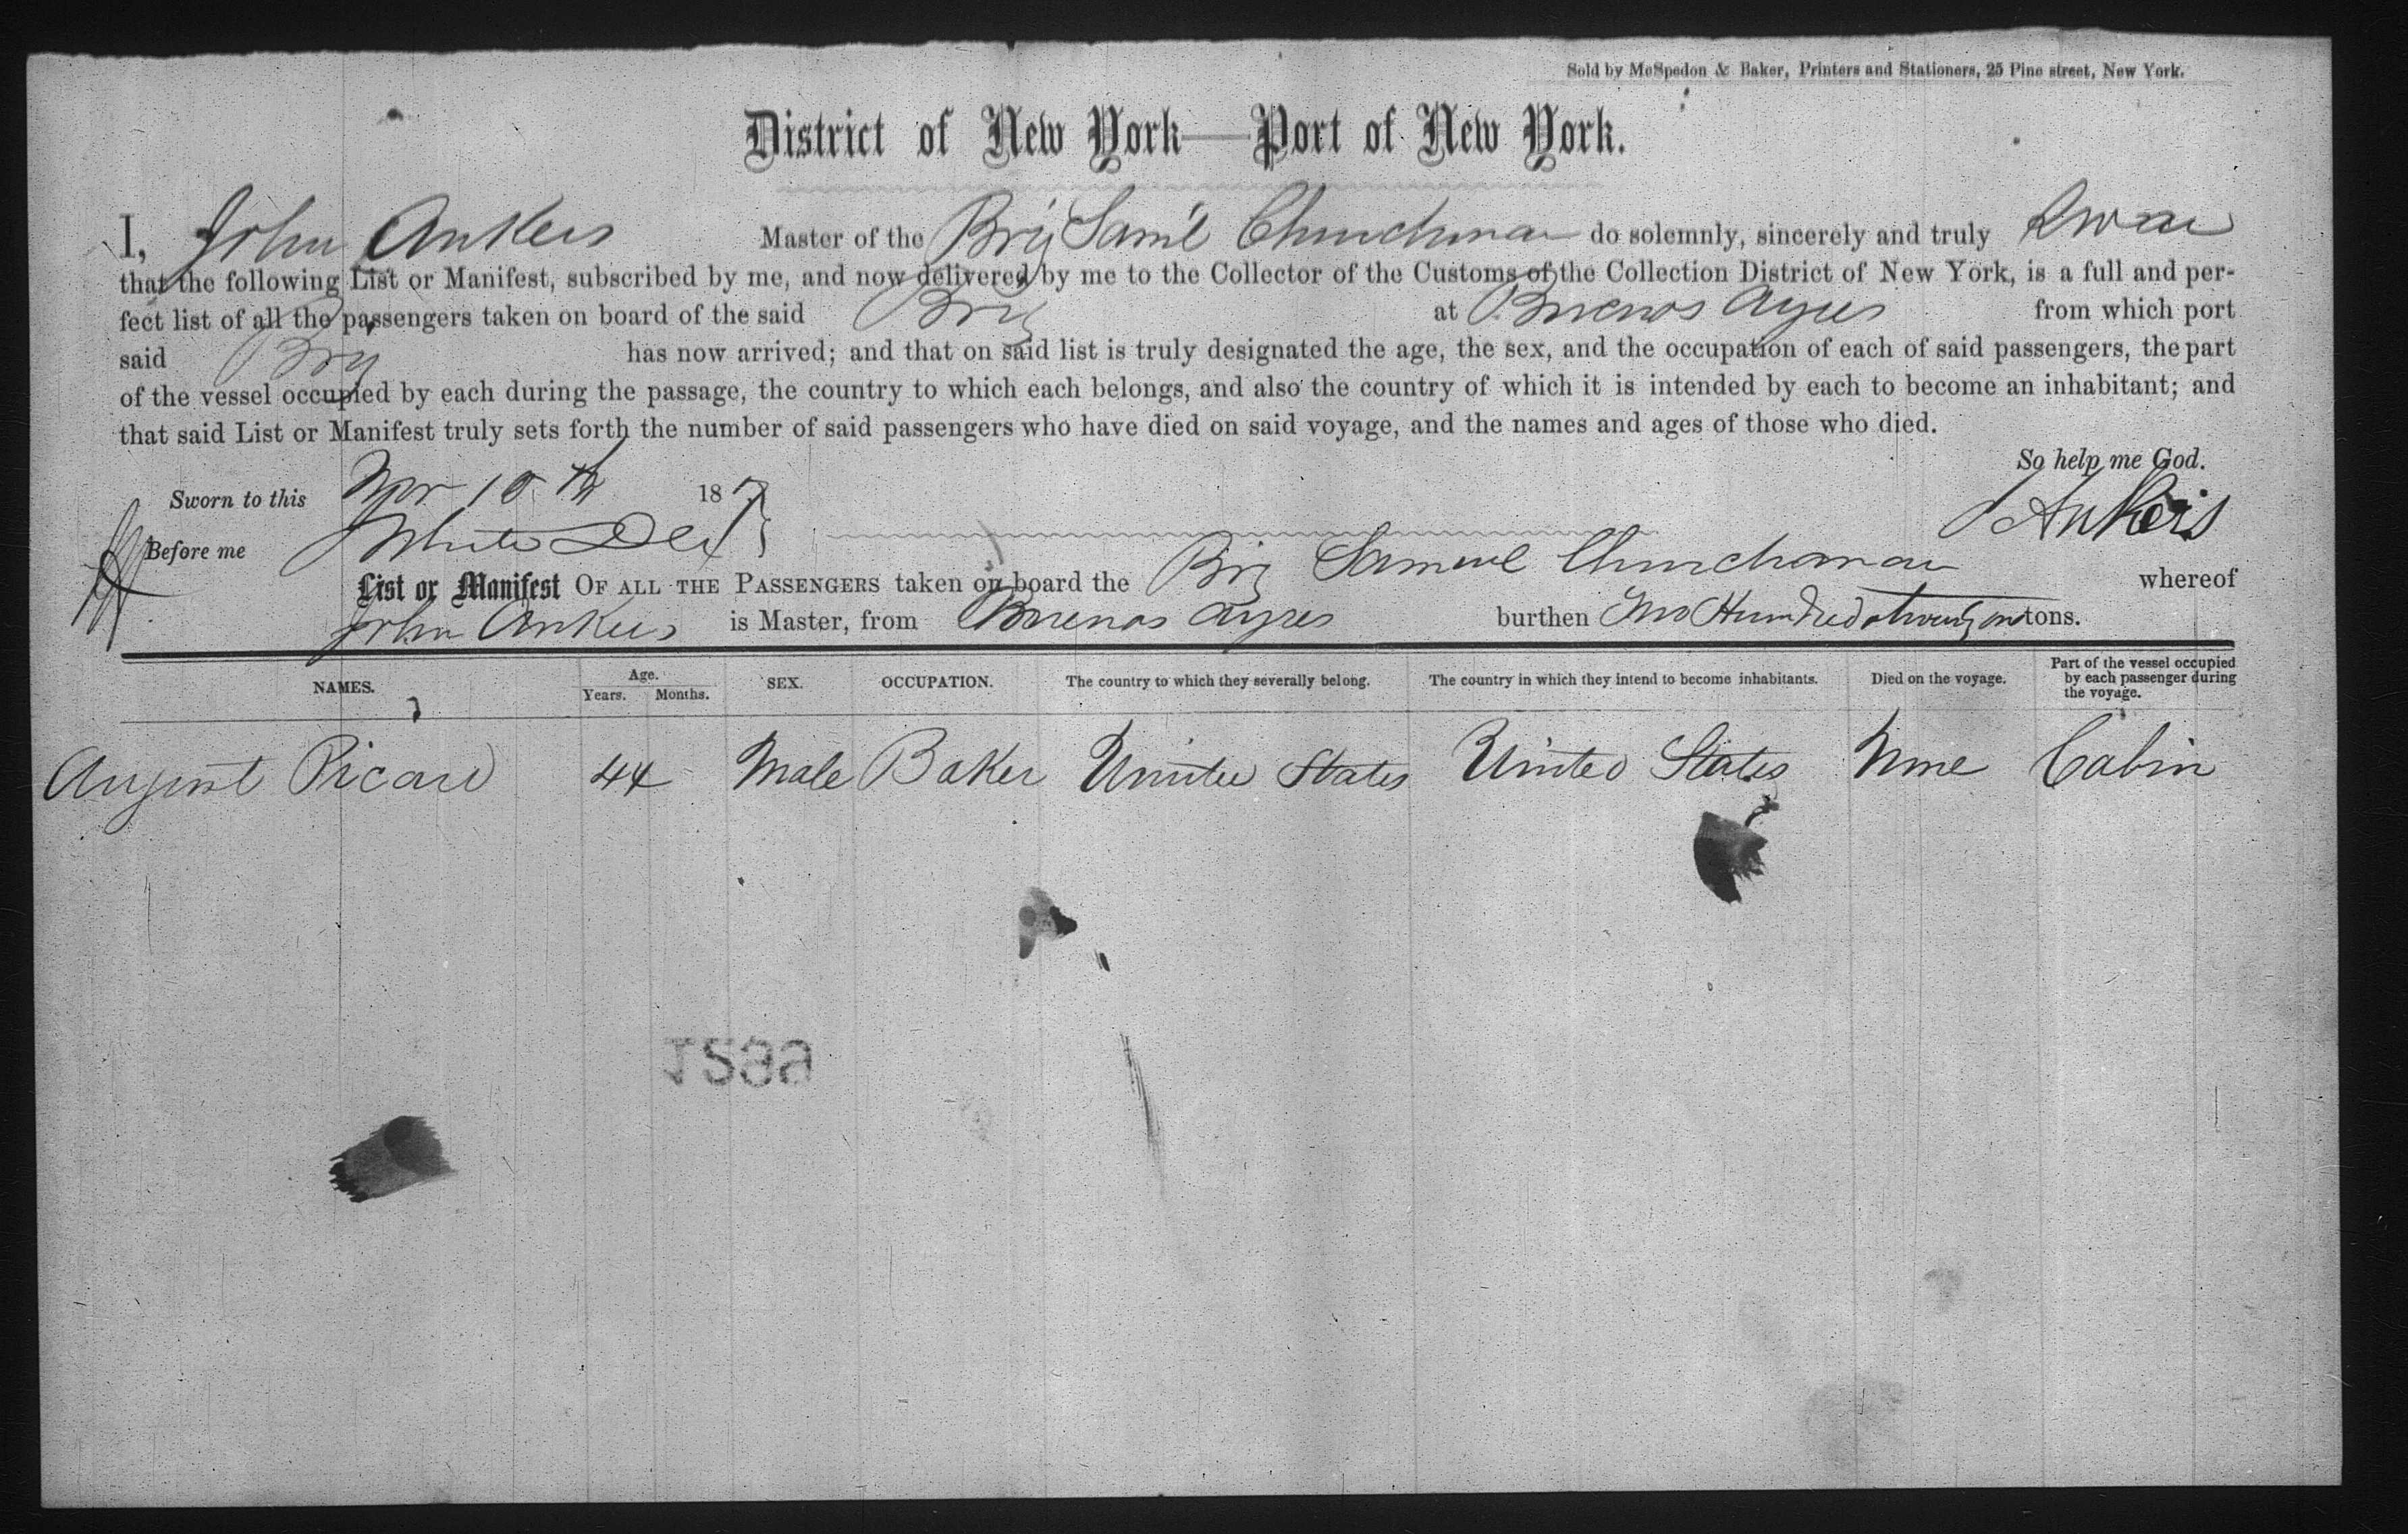 Sold by McSpedon & Baker, Printers and Stationers, 25 Pine street, New York.
District of New York—Port of New York.
I, John Ankers Master of the Brig Sam'l Churchman do solemnly, sincerely and truly Swear
that the following List or Manifest, subscribed by me, and now delivered by me to the Collector of the Customs of the Collection District of New York, is a full and per-
fect list of all the passengers taken on board of the said Brig at Buenos Ayres from which port
said Brig has now arrived; and that on said list is truly designated the age, the sex, and the occupation of each of said passengers, the part
of the vessel occupied by each during the passage, the country to which each belongs, and also the country of which it is intended by each to become an inhabitant; and
that said List or Manifest truly sets forth the number of said passengers who have died on said voyage, and the names and ages of those who died.
So help me God.
Sworn to this 10th 187
J Ankers
Before me
List or Manifest OF ALL THE PASSENGERS taken on board the Brig Samuel Churchman whereof
John Ankers is Master, from Buenos Ayres burthen Two Hundred & twenty one tons.
NAMES. Age. Years. Months. SEX. OCCUPATION. The country to which they severally belong. The country in which they intend to become inhabitants. Died on the voyage. Part of the vessel occupied by each passenger during the voyage.
Picard 44 Male Baker United States United States None Cabin